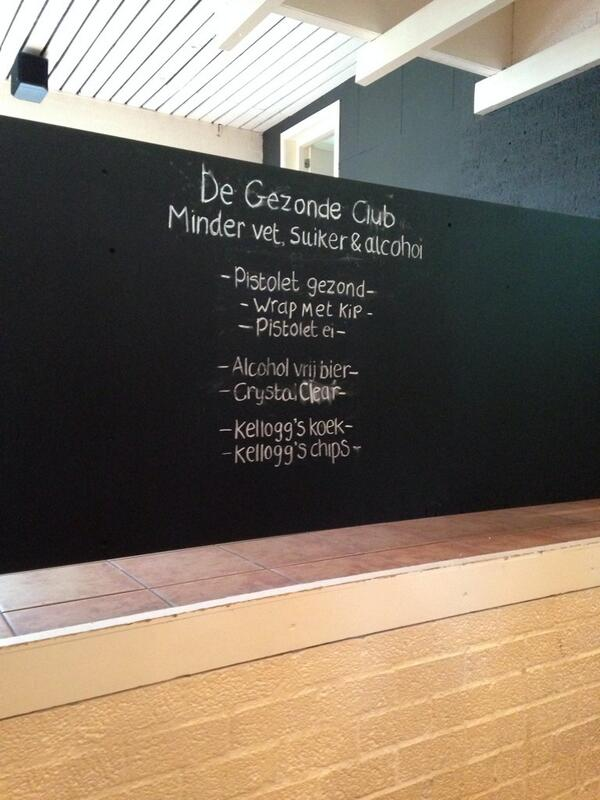 De Gezonde Club
Minder vet, suiker & alcohol
- Pistolet gezond -
- Wrap Met Kip -
- Pistolet ei -
- Alcohol vrij bier -
- Crystal Clear -
- Kellogg's koek -
- Kellogg's chips -